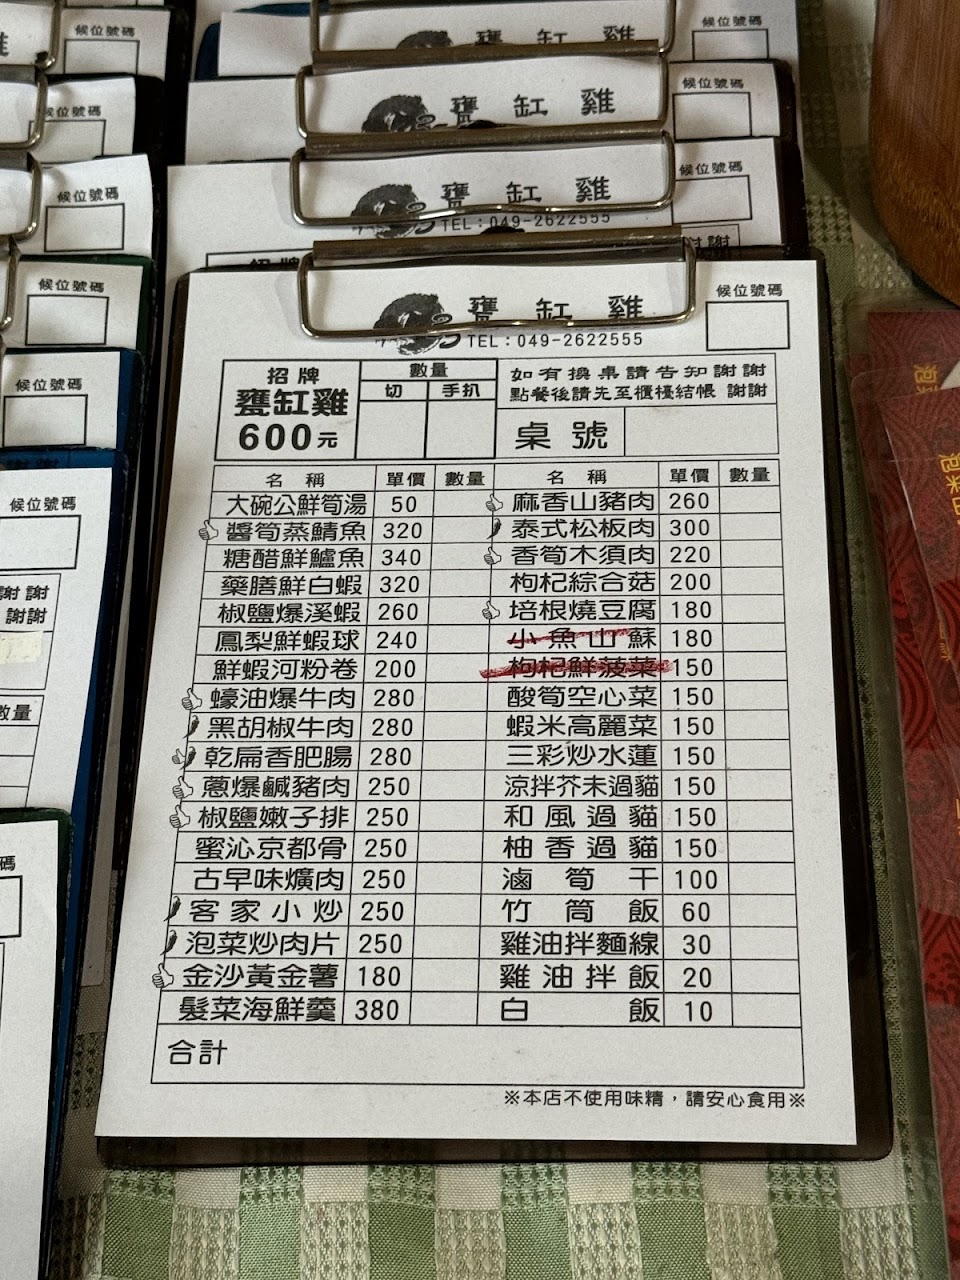 候位號碼
甕缸雞
候位號碼
候位號碼
甕缸雞
候位號碼
候位號碼
甕缸雞
TEL：049-2622555
候位號碼
候位號碼
候位號碼
候位號碼
謝謝
謝謝
數量
甕缸雞
TEL：049-2622555
候位號碼
招牌
甕缸雞
600元
數量
切 手扒
如有換桌請告知謝謝
點餐後請先至櫃檯結帳 謝謝
桌號
名稱 單價 數量 名稱 單價 數量
大碗公鮮筍湯 50 麻香山豬肉 260
醬筍蒸鯖魚 320 泰式松板肉 300
糖醋鮮鱸魚 340 香筍木須肉 220
藥膳鮮白蝦 320 枸杞綜合菇 200
椒鹽爆溪蝦 260 培根燒豆腐 180
鳳梨鮮蝦球 240 小魚山蘇 180
鮮蝦河粉卷 200 枸杞鮮菠菜 150
蠔油爆牛肉 280 酸筍空心菜 150
黑胡椒牛肉 280 蝦米高麗菜 150
乾扁香肥腸 280 三彩炒水蓮 150
蔥爆鹹豬肉 250 涼拌芥末過貓 150
椒鹽嫩子排 250 和風過貓 150
蜜沁京都骨 250 柚香過貓 150
古早味爌肉 250 滷筍干 100
客家小炒 250 竹筒飯 60
泡菜炒肉片 250 雞油拌麵線 30
金沙黃金薯 180 雞油拌飯 20
髮菜海鮮羹 380 白飯 10
合計
※本店不使用味精，請安心食用※